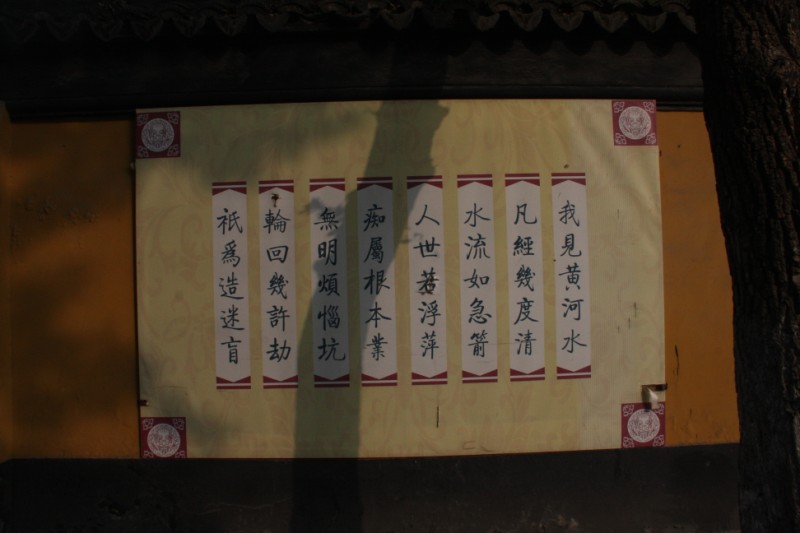 我見黃河水
凡經幾度清
水流如急箭
人世若浮萍
痴屬根本業
無明煩惱坑
輪回幾許劫
祇爲造迷盲